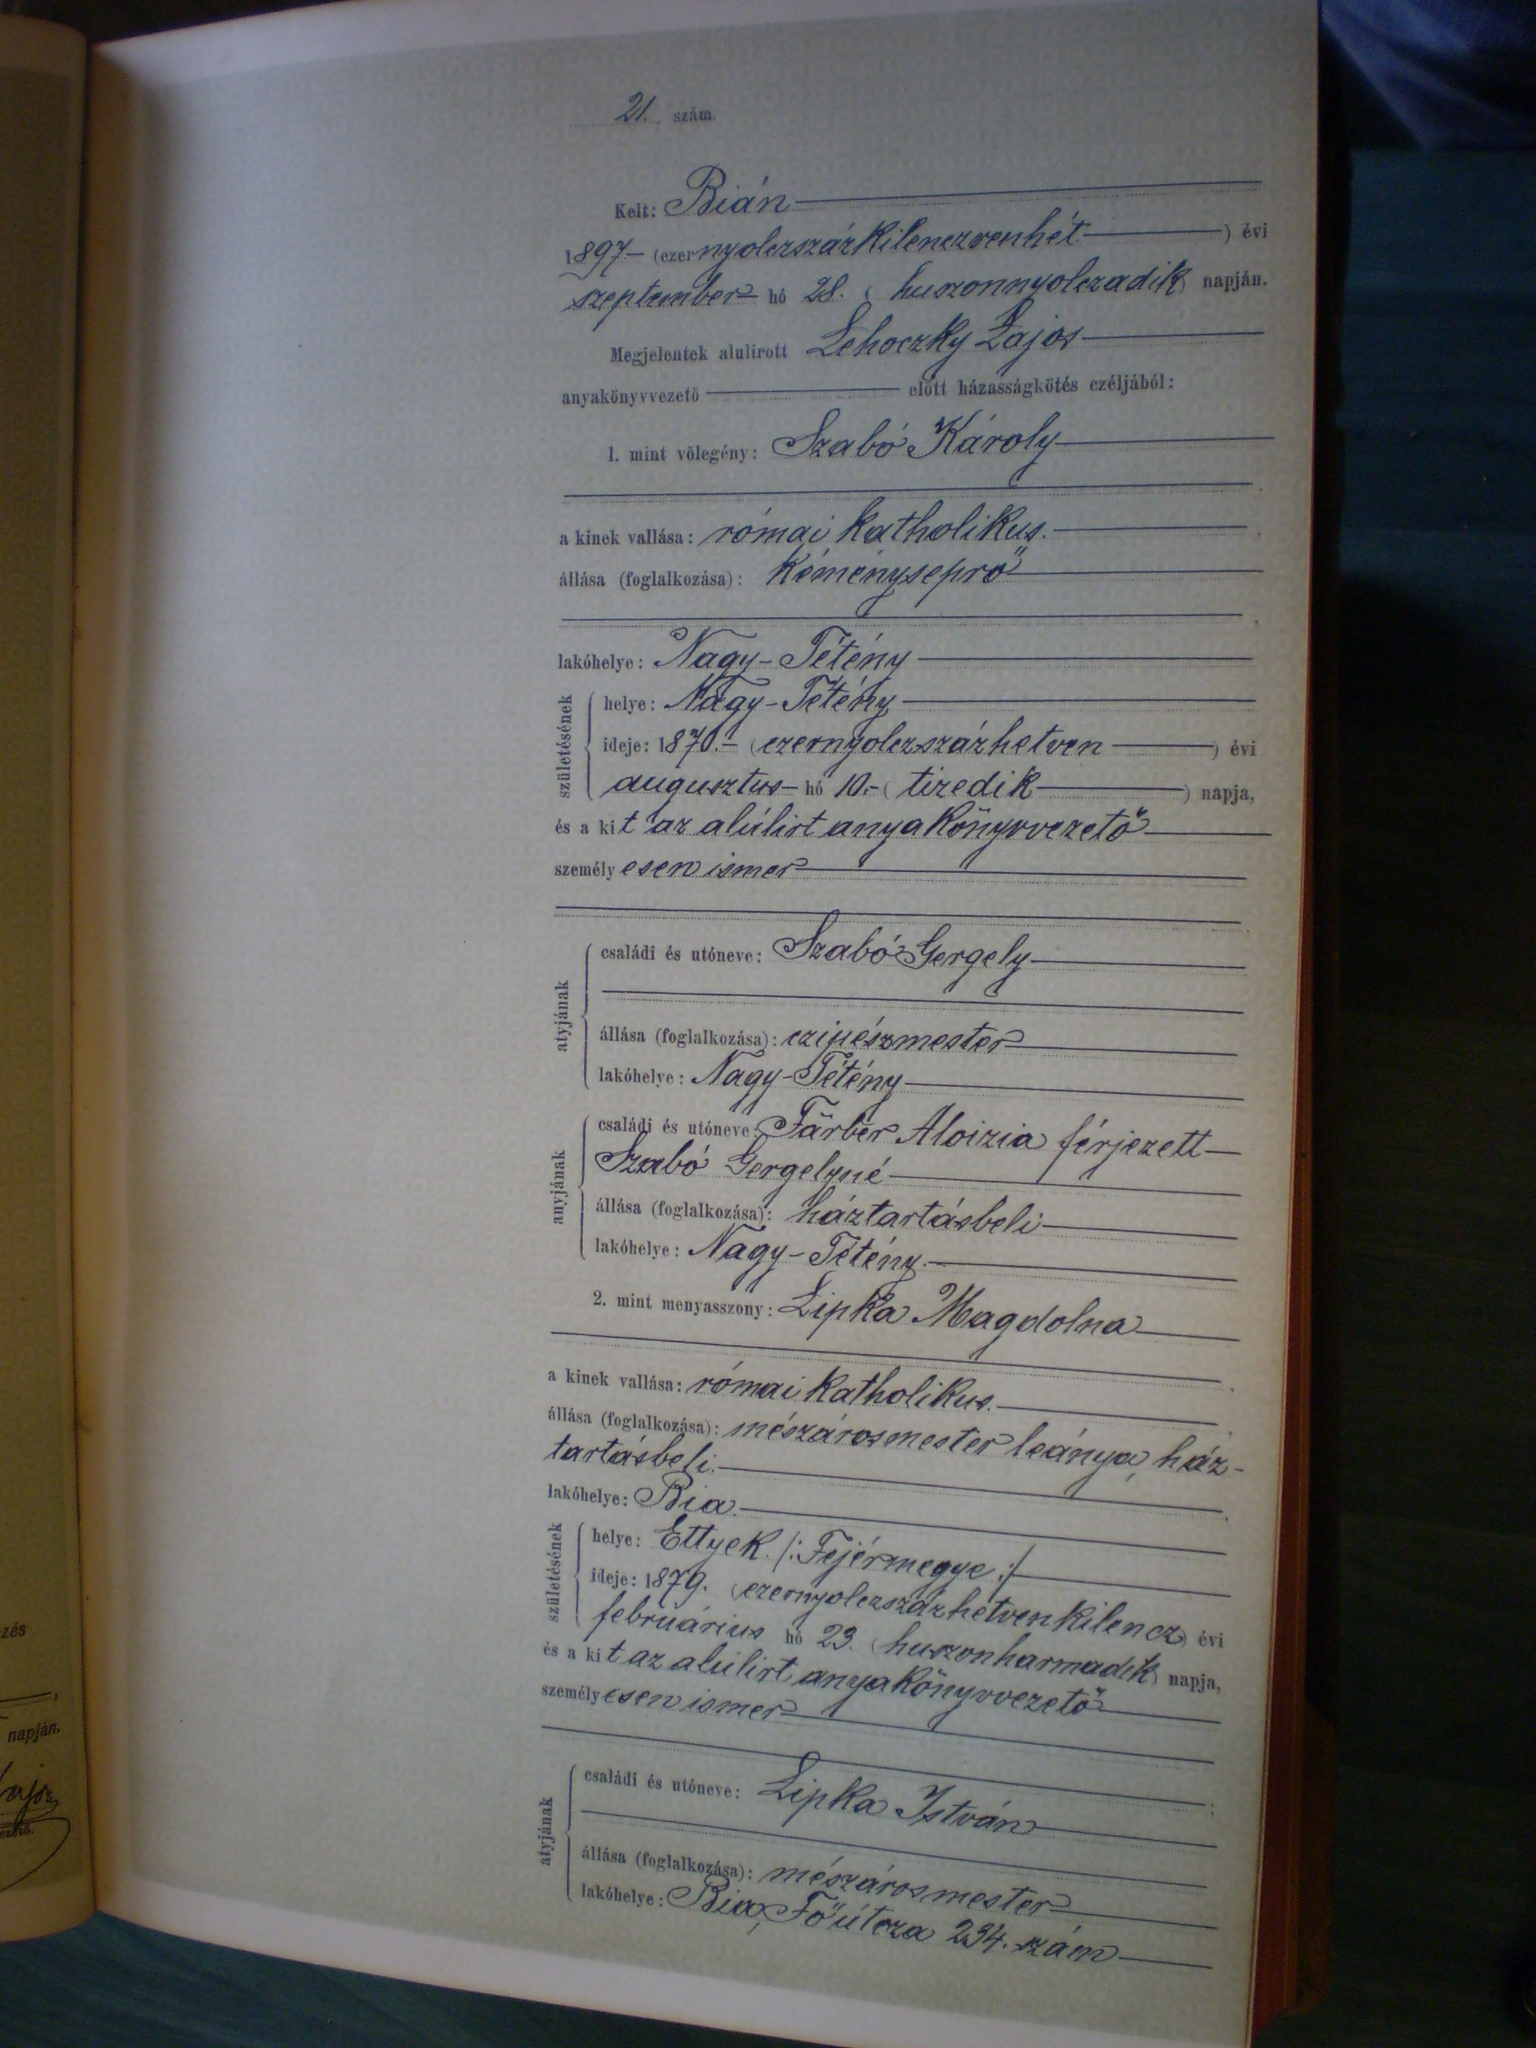 21. szám
Kelt: Bián
1897 (ezernyolczszázkilenczvenhét) évi
szeptember hó 28. (huszonnyolczadik) napján.
Megjelentek alulirott Lehoczky Lajos
anyakönyvvezető előtt házasságkötés czéljából:
1. mint vőlegény: Szabó Károly
a kinek vallása: római katholikus.
állása (foglalkozása): kéményseprő
lakóhelye: Nagy-Tétény
születésének
helye: Nagy-Tétény
ideje: 1870. (ezernyolczszázhetven) évi
augusztus hó 10. (tizedik) napja,
és a kit az alúlirt anyakönyvvezető
személyesen ismer
atyjának
családi és utóneve: Szabó Gergely
állása (foglalkozása): czipészmester
lakóhelye: Nagy-Tétény
anyjának
családi és utóneve: Färber Aloizia férjezett
Szabó Gergelyné
állása (foglalkozása): háztartásbeli
lakóhelye: Nagy-Tétény.
2. mint menyasszony: Lipka Magdolna
a kinek vallása: római katholikus.
állása (foglalkozása): mészárosmester leánya, ház-
tartásbeli.
lakóhelye: Bia.
születésének
helye: Ettyek. /:Fejérmegye:/
ideje: 1879. (ezernyolczszázhetvenkilencz) évi
februáŕius hó 23. (huszonharmadik) napja,
és a kit az alúlirt anyakönyvvezető
személyesen ismer
atyjának
családi és utóneve: Lipka István
állása (foglalkozása): mészárosmester
lakóhelye: Bia, Főútcza 234. szám
zés
napján.